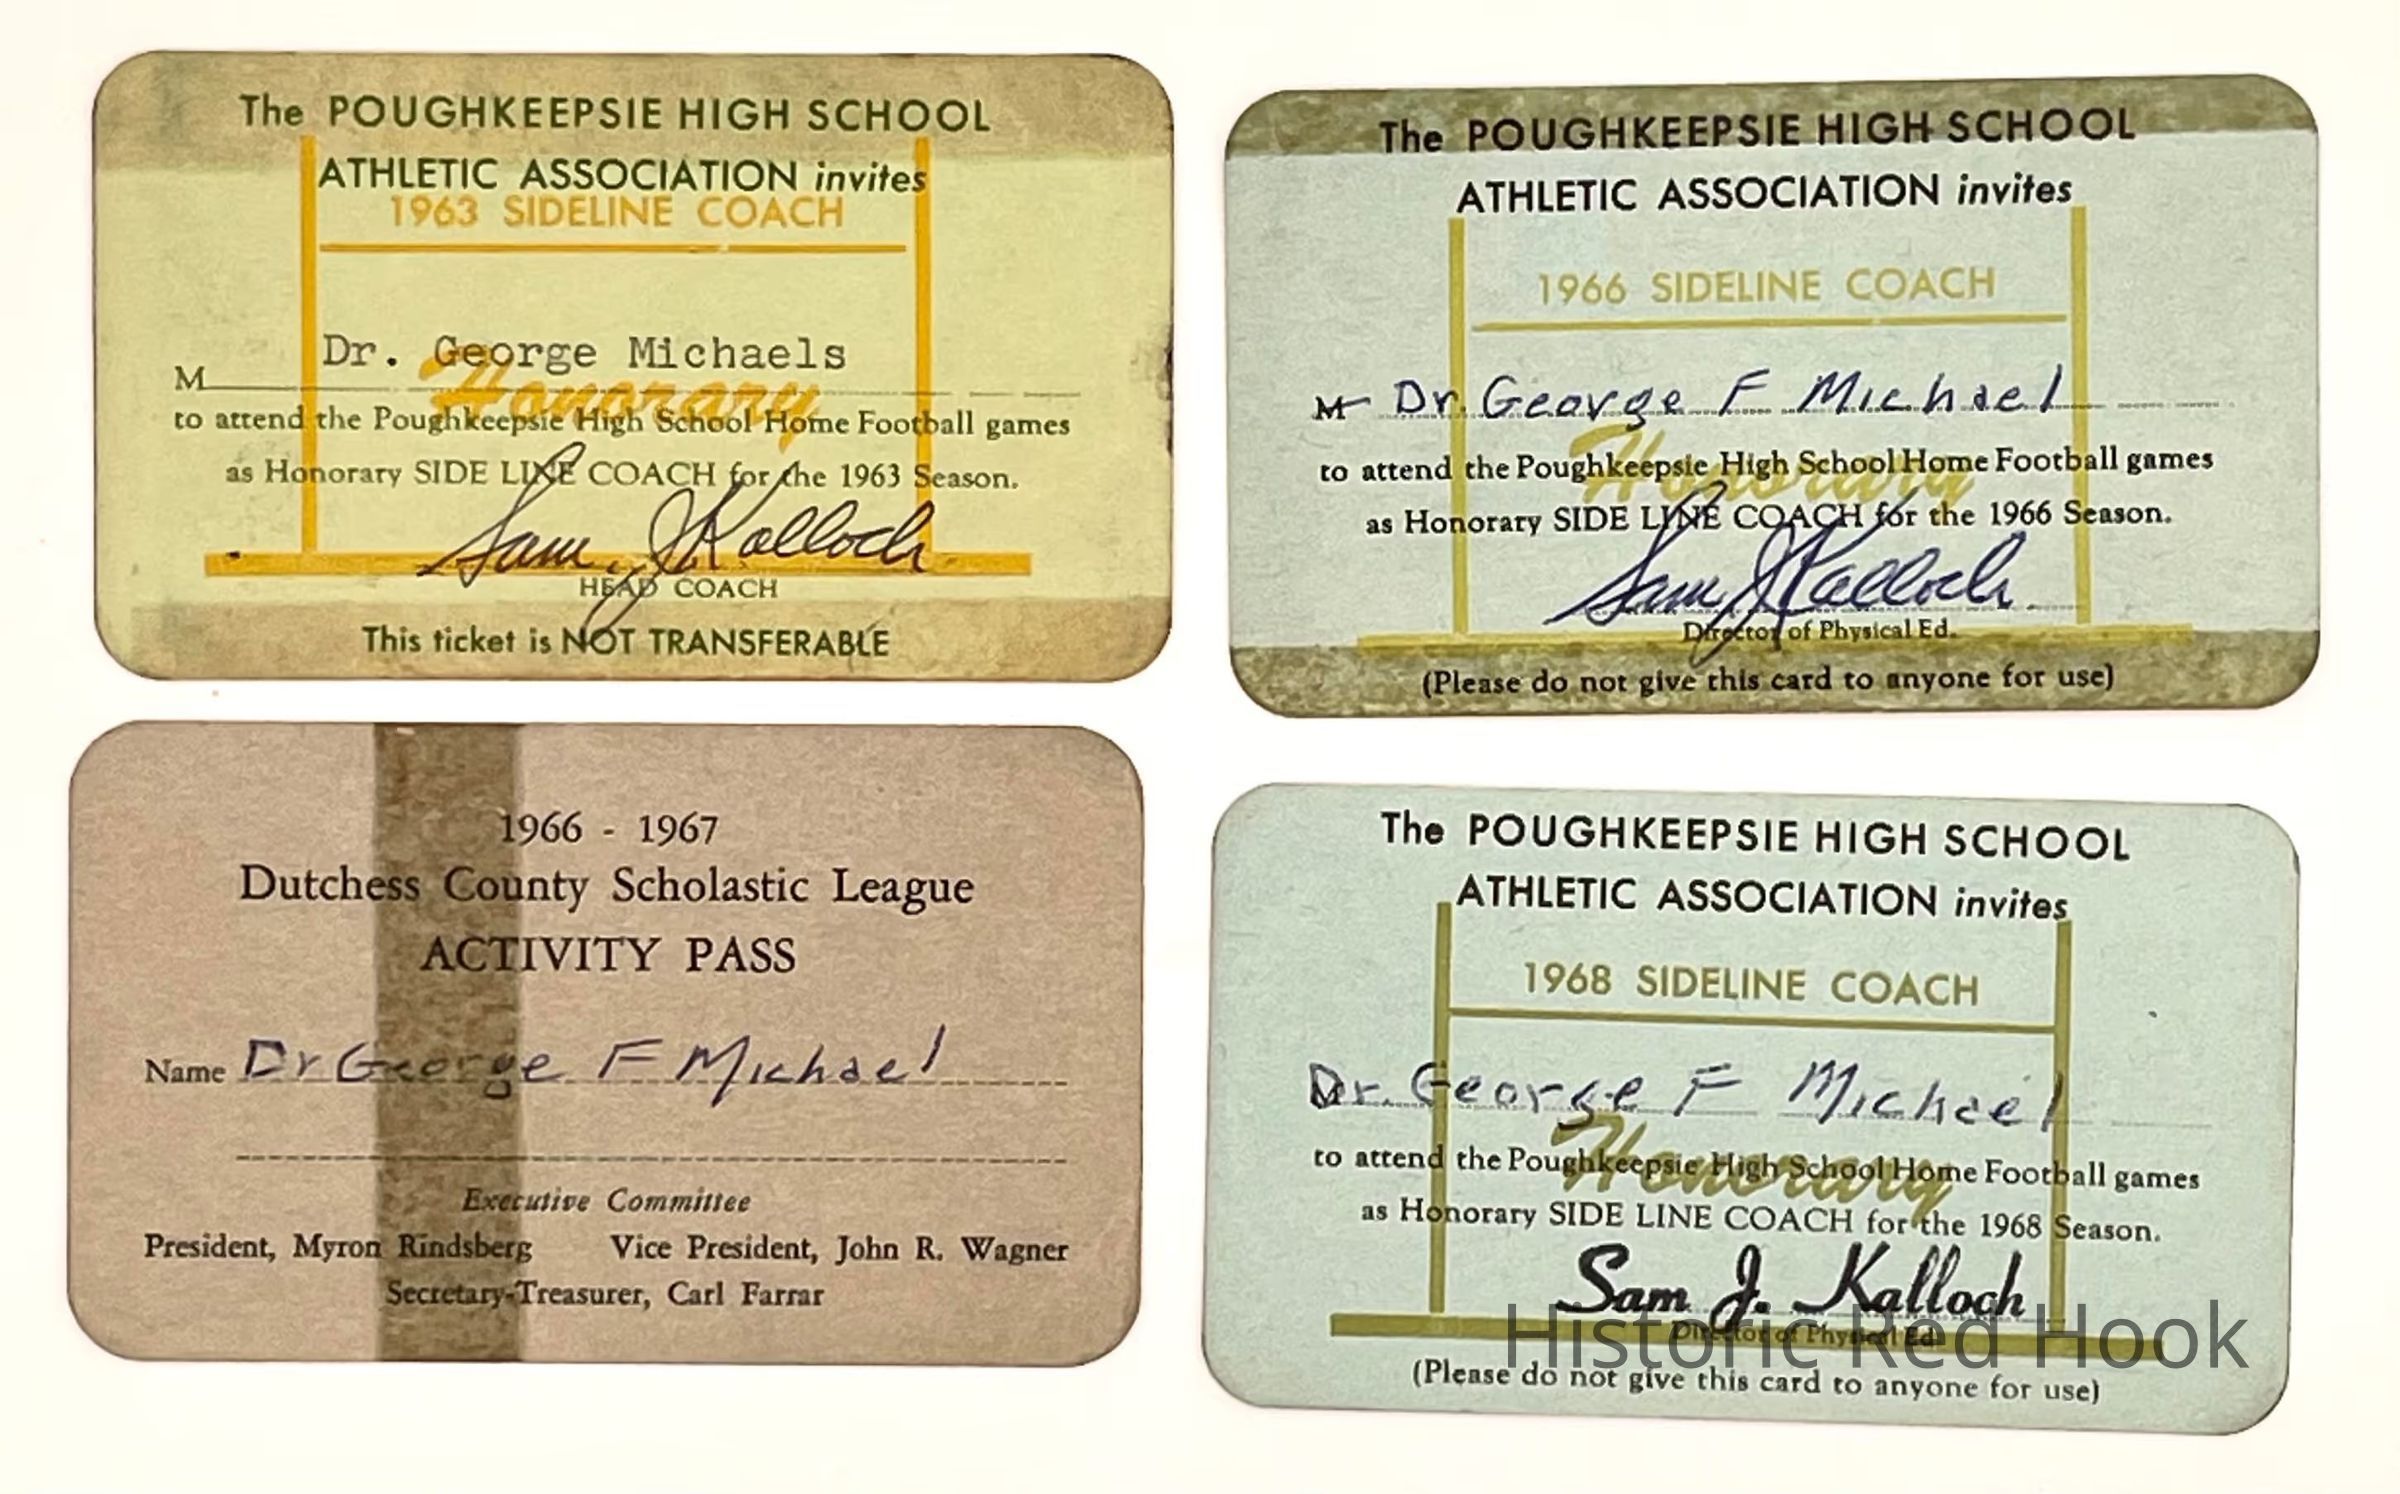 The POUGHKEEPSIE HIGH SCHOOL
ATHLETIC ASSOCIATION invites
1963 SIDELINE COACH
Dr. George Michaels
M
Honorary
to attend the Poughkeepsie High School Home Football games
as Honorary SIDE LINE COACH for the 1963 Season.
Sam J Kalloch
HEAD COACH
This ticket is NOT TRANSFERABLE
The POUGHKEEPSIE HIGH SCHOOL
ATHLETIC ASSOCIATION invites
1966 SIDELINE COACH
M Dr. George F Michael
Honorary
to attend the Poughkeepsie High School Home Football games
as Honorary SIDE LINE COACH for the 1966 Season.
Sam J Kalloch
Director of Physical Ed.
(Please do not give this card to anyone for use)
1966 - 1967
Dutchess County Scholastic League
ACTIVITY PASS
Name Dr George F Michael
Executive Committee
President, Myron Rindsberg Vice President, John R. Wagner
Secretary-Treasurer, Carl Farrar
The POUGHKEEPSIE HIGH SCHOOL
ATHLETIC ASSOCIATION invites
1968 SIDELINE COACH
Dr. George F Michael
Honorary
to attend the Poughkeepsie High School Home Football games
as Honorary SIDE LINE COACH for the 1968 Season.
Sam J. Kalloch
Director of Physical Ed.
Historic Red Hook
(Please do not give this card to anyone for use)